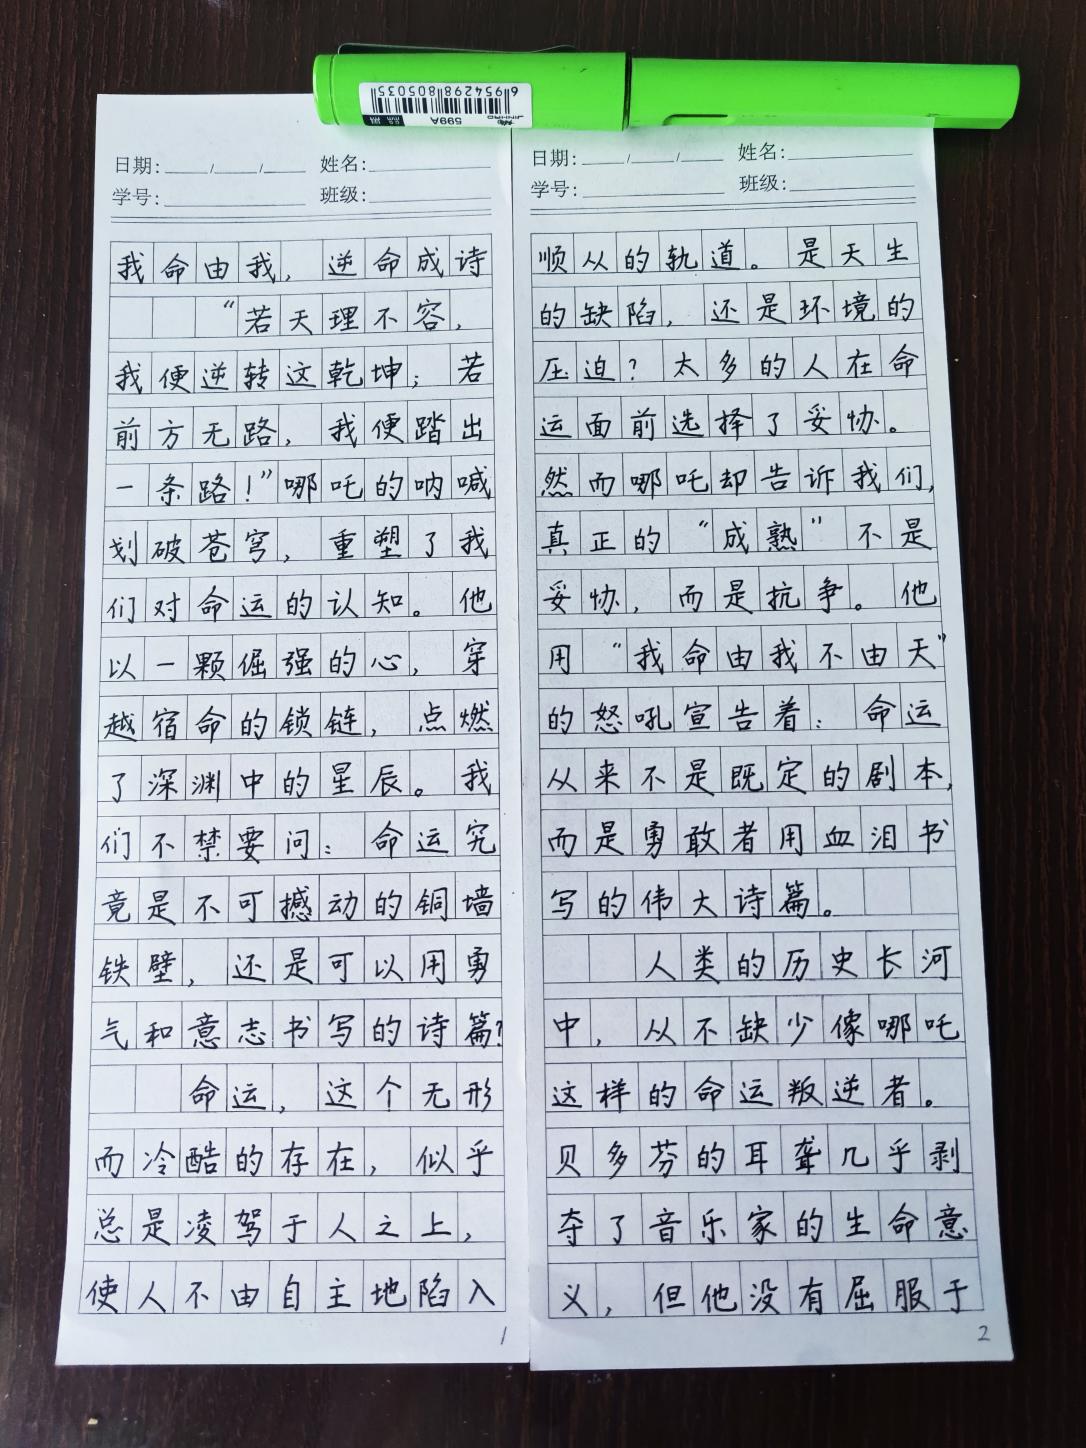 6 954298 805035
599A
JINHAO
日期：___/___/___ 姓名：___
学号：___ 班级：___
我命由我，逆命成诗
“若天理不容，
我便逆转这乾坤；若
前方无路，我便踏出
一条路！”哪吒的呐喊
划破苍穹，重塑了我
们对命运的认知。他
以一颗倔强的心，穿
越宿命的锁链，点燃
了深渊中的星辰。我
们不禁要问：命运究
竟是不可撼动的铜墙
铁壁，还是可以用勇
气和意志书写的诗篇？
命运，这个无形
而冷酷的存在，似乎
总是凌驾于人之上，
使人不由自主地陷入
1
日期：___/___/___ 姓名：___
学号：___ 班级：___
顺从的轨道。是天生
的缺陷，还是环境的
压迫？太多的人在命
运面前选择了妥协。
然而哪吒却告诉我们，
真正的“成熟”不是
妥协，而是抗争。他
用“我命由我不由天”
的怒吼宣告着：命运
从来不是既定的剧本，
而是勇敢者用血泪书
写的伟大诗篇。
人类的历史长河
中，从不缺少像哪吒
这样的命运叛逆者。
贝多芬的耳聋几乎剥
夺了音乐家的生命意
义，但他没有屈服于
2